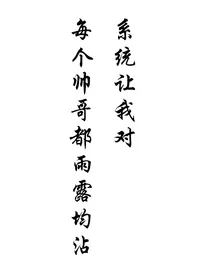 系统让我对
每个帅哥都雨露均沾